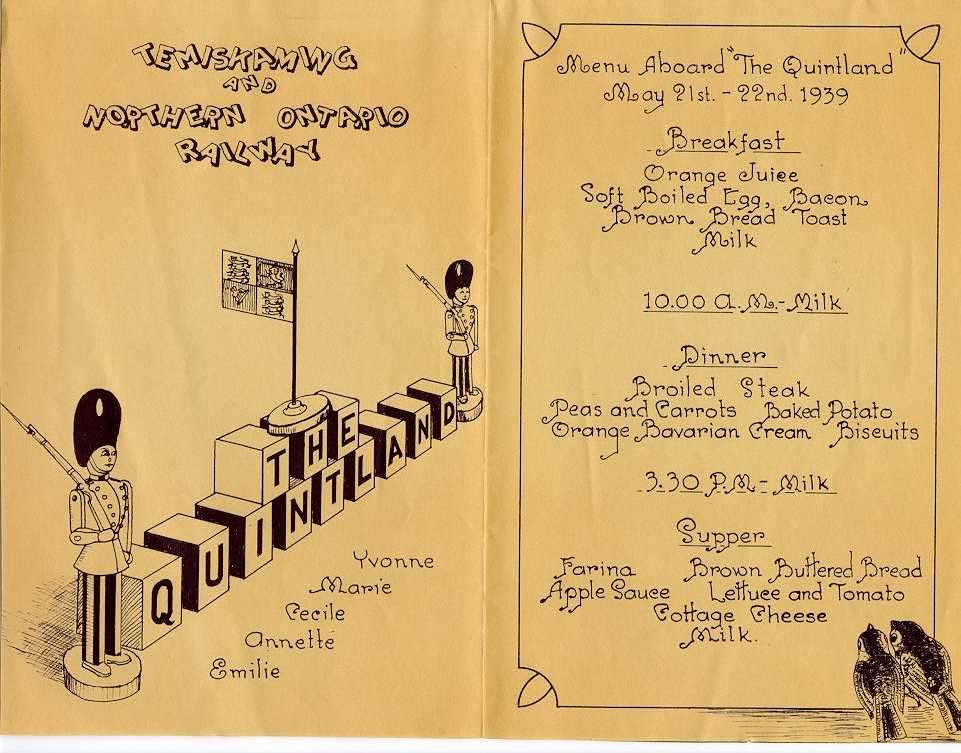 TEMISKAMING
AND
NORTHERN ONTARIO
RAILWAY
THE
QUINTLAND
Yvonne
Marie
Cecile
Annette
Emilie
Menu Aboard "The Quintland"
May 21st. - 22nd. 1939
Breakfast
Orange Juice
Soft Boiled Egg, Bacon
Brown Bread Toast
Milk
10.00 A.M. - Milk
Dinner
Broiled Steak
Peas and Carrots Baked Potato
Orange Bavarian Cream Biscuits
3.30 P.M - Milk
Supper
Farina Brown Buttered Bread
Apple Sauce Lettuce and Tomato
Cottage Cheese
Milk.